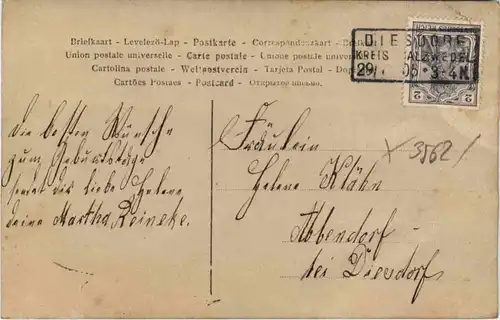 Briefkaart - Levelező-Lap - Postkarte - Correspondenzkart -
Union postale universelle - Carte postale - Unione postale universale
Cartolina postale - Weltpostverein - Tarjeta Postal -
Cartões Postaes - Postcard - Открытое письмо.
DIESDORF
KREIS SALZWEDEL
29 06 3-4N
2 2
Die besten Wünsche
zum Geburtstage
sendet dir liebe Helene
deine Martha Reineke.
Fräulein
Helene Klähn
Abbendorf
bei Diesdorf
3562/